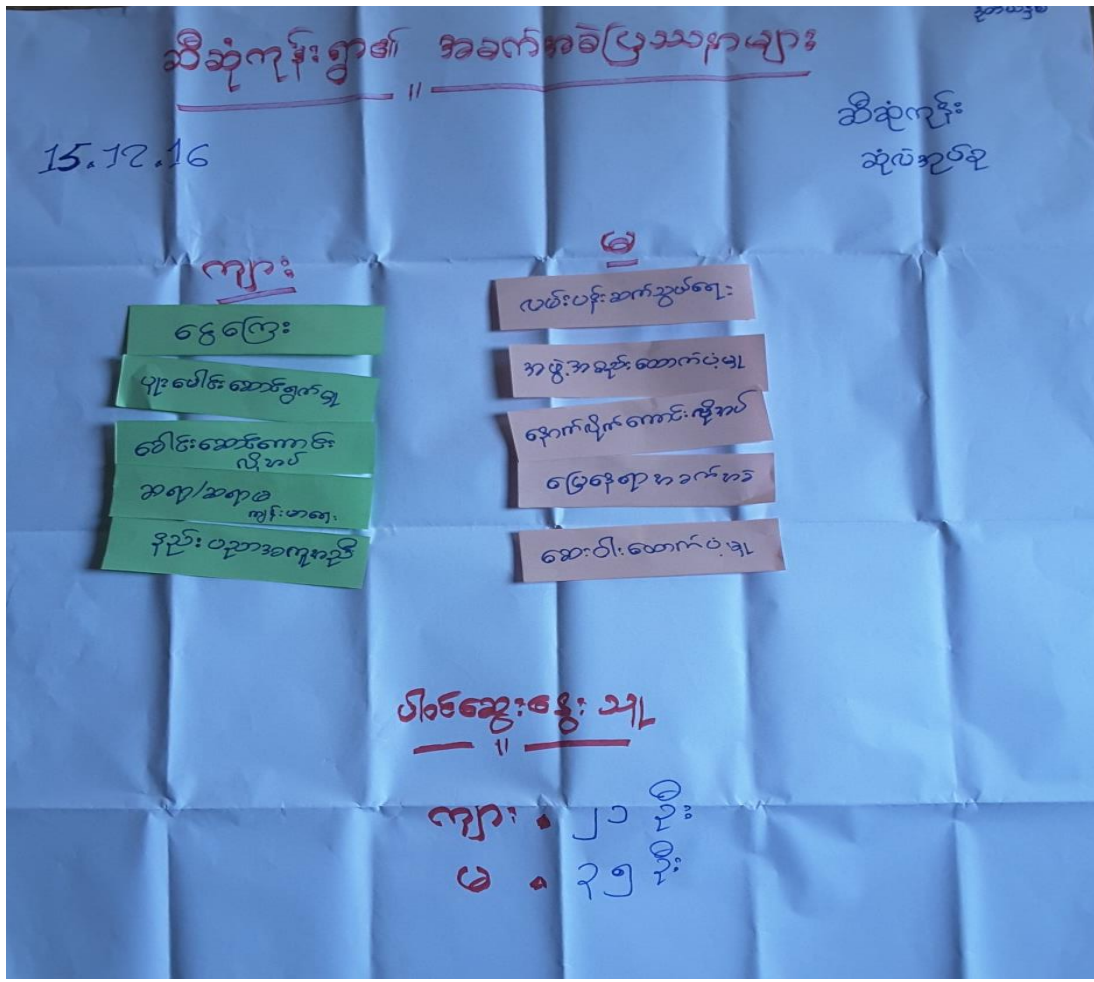 ဆီဆုံကုန်းရွာ၏ အခက်အခဲပြဿနာများ
ဆီဆုံကုန်း
15.12.16
ဆုံလဲအုပ်စု
ကျား
မ
ငွေကြေး
ပူးပေါင်းဆောင်ရွက်မှု
ခေါင်းဆောင်ကောင်း
လိုအပ်
ဆရာ/ဆရာမ
ကျန်းမာရေး
နည်းပညာအကူအညီ
လမ်းပန်းဆက်သွယ်ရေး
အဖွဲ့အစည်းထောက်ပံ့မှု
နောက်လိုက်ကောင်းလိုအပ်
မြေနေရာအခက်အခဲ
ဆေးဝါးထောက်ပံ့မှု
ပါဝင်ဆွေးနွေးသူ
ကျား . ၂၁ ဦး
မ . ၃၅ ဦး